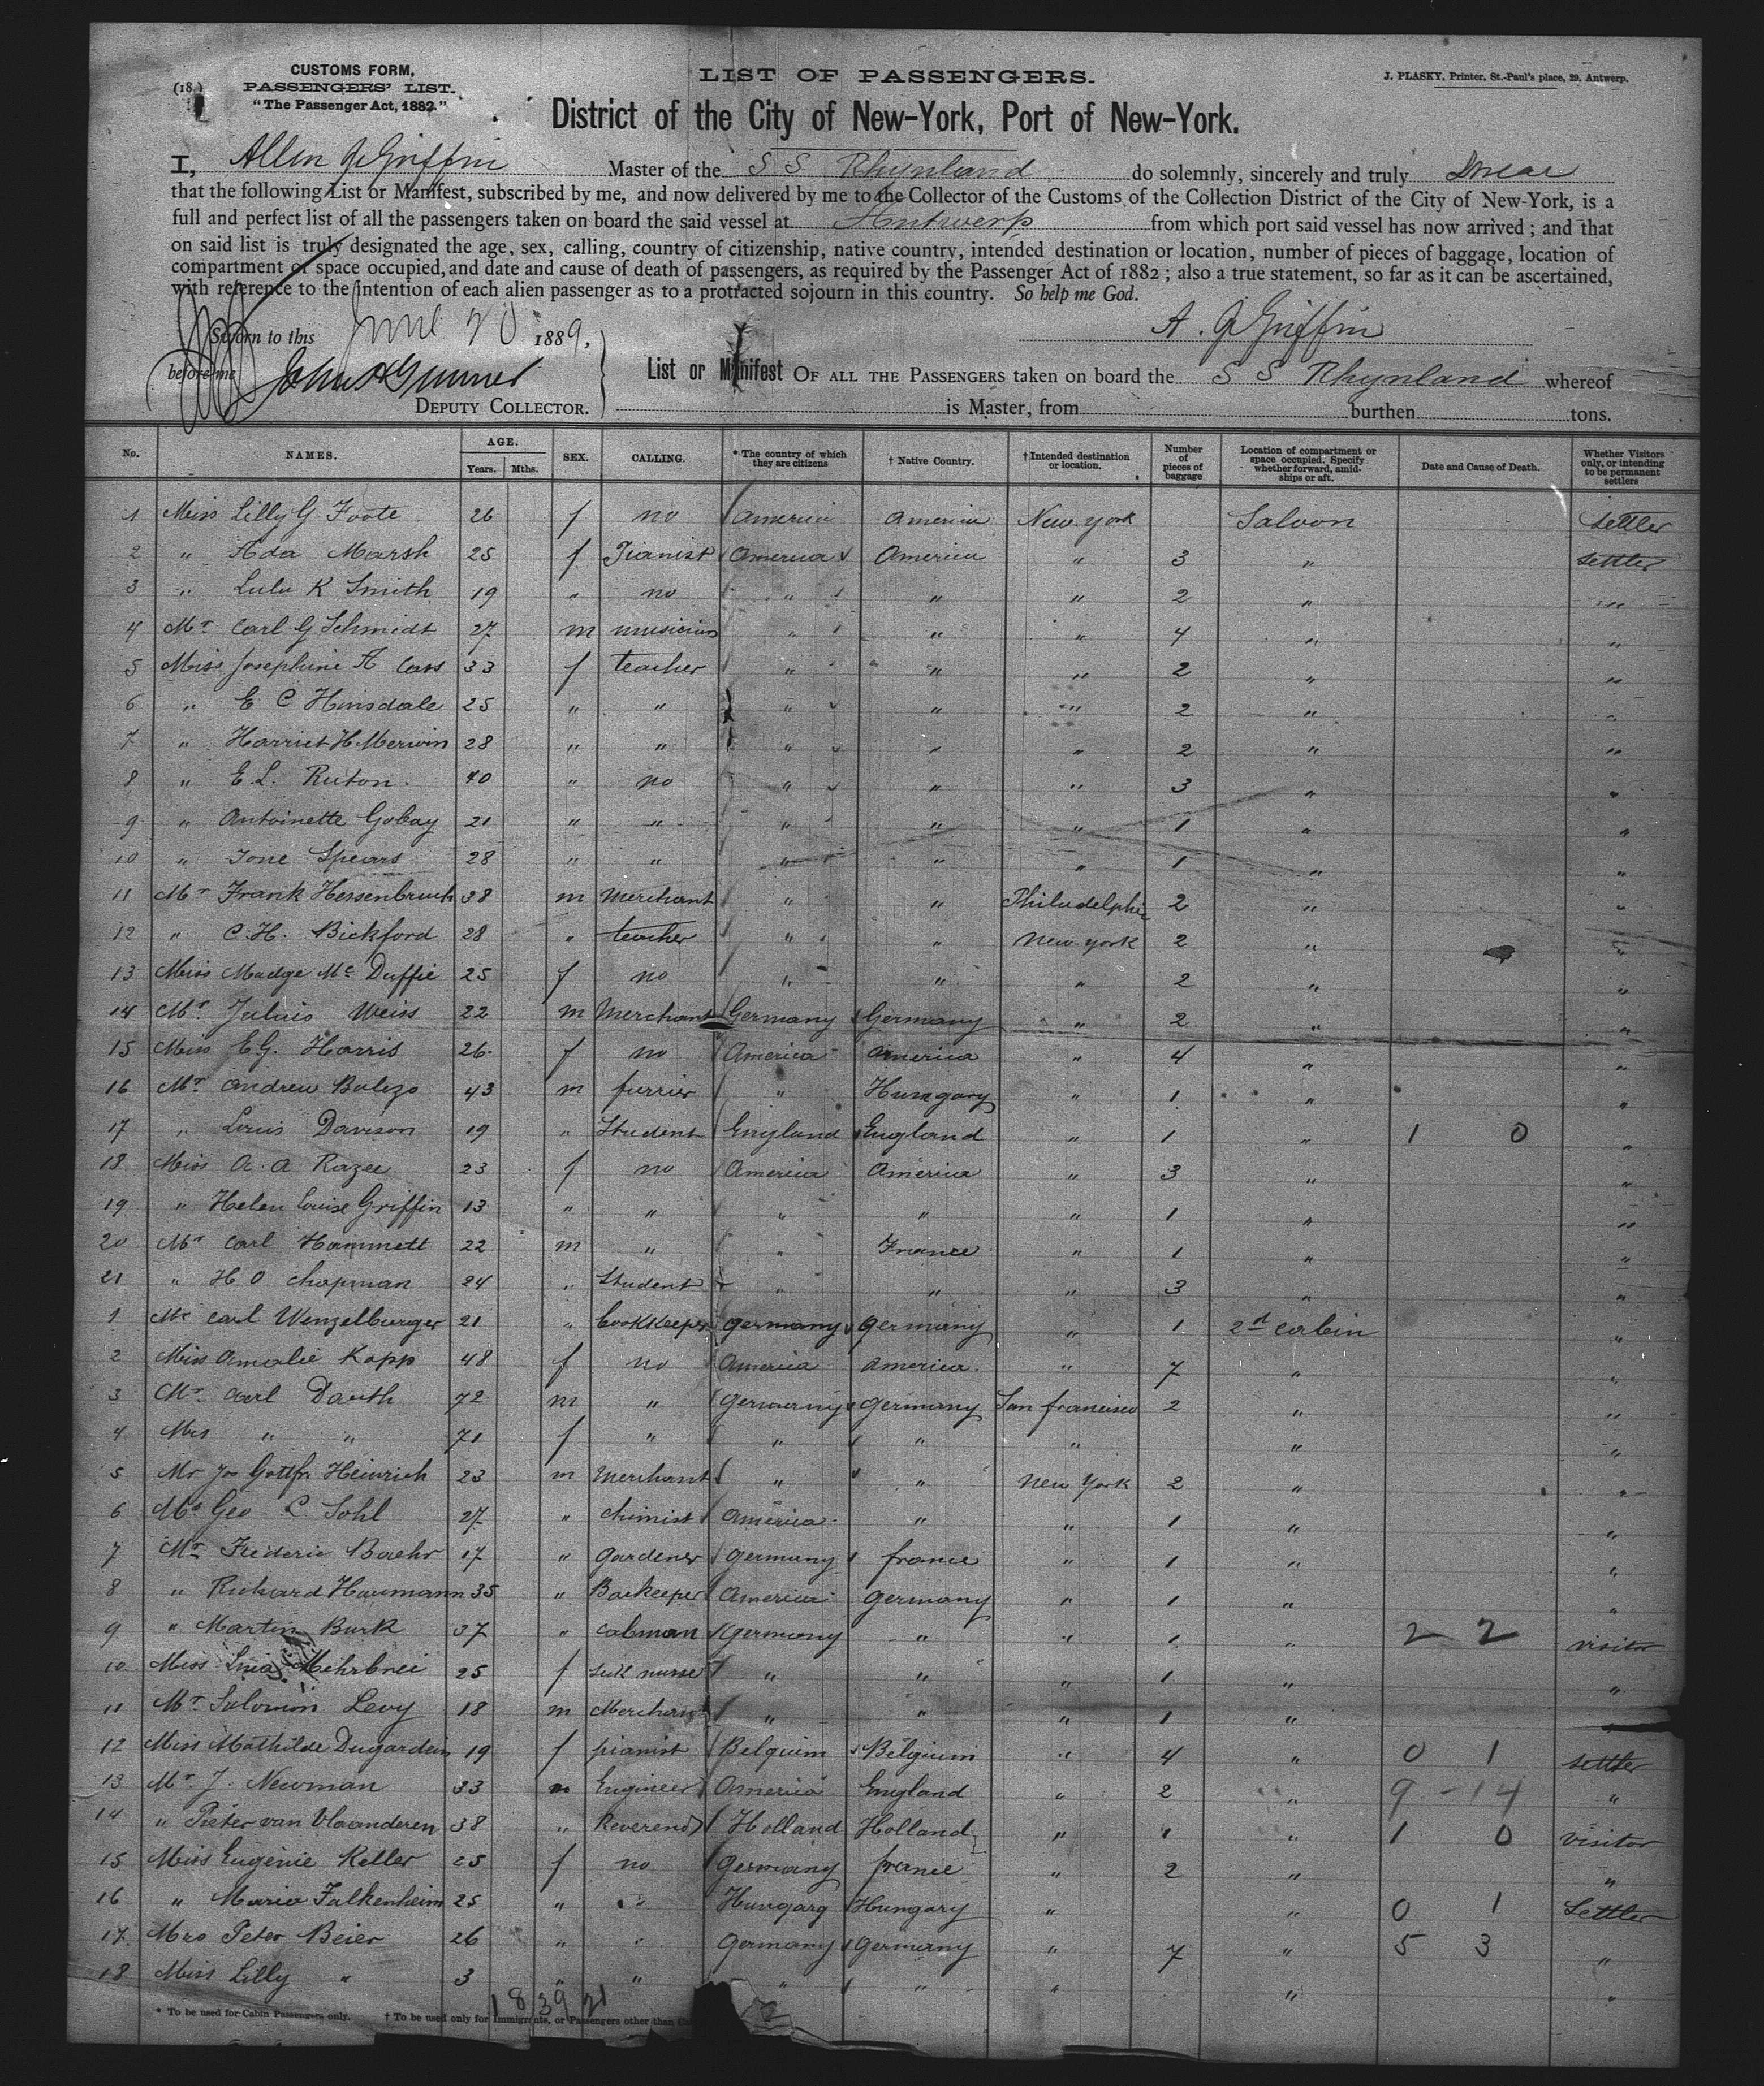 (18 )
CUSTOMS FORM,
PASSENGERS' LIST.
"The Passenger Act, 1882."
LIST OF PASSENGERS.
J. PLASKY, Printer, St.-Paul's place, 29. Antwerp.
District of the City of New-York, Port of New-York.
I, Allen J Griffin Master of the S S Rhynland do solemnly, sincerely and truly Swear
that the following List or Manifest, subscribed by me, and now delivered by me to the Collector of the Customs of the Collection District of the City of New-York, is a
full and perfect list of all the passengers taken on board the said vessel at Antwerp from which port said vessel has now arrived ; and that
on said list is truly designated the age, sex, calling, country of citizenship, native country, intended destination or location, number of pieces of baggage, location of
compartment or space occupied, and date and cause of death of passengers, as required by the Passenger Act of 1882 ; also a true statement, so far as it can be ascertained,
with reference to the intention of each alien passenger as to a protracted sojourn in this country. So help me God.
Sworn to this June 20 1889, A. J Griffin
before me
DEPUTY COLLECTOR.
List or Manifest OF ALL THE PASSENGERS taken on board the S S Rhynland whereof
is Master, from burthen tons.
No. NAMES. AGE. Years. Mths. SEX. CALLING. * The country of which they are citizens † Native Country. † Intended destination or location. Number of pieces of baggage Location of compartment or space occupied. Specify whether forward, amidships or aft. Date and Cause of Death. Whether Visitors only, or intending to be permanent settlers
1 Miss Lilly G Foote 26 f no America America New York Saloon settler
2 " Ada Marsh 25 f Pianist America America " 3 " settler
3 " Lulu K Smith 19 " no " " " 2 " "
4 Mr Carl G Schmidt 27 m musician " " " 4 " "
5 Miss Josephine A Cass 33 f teacher " " " 2 " "
6 " E C Hinsdale 25 " " " " " 2 " "
7 " Harriet H Merwin 28 " " " " " 2 " "
8 " E. L. Ruton 40 " no " " " 3 " "
9 " Antoinette Gobay 21 " " " " " 1 " "
10 " Ione Spears 28 " " " " " 1 " "
11 Mr Frank Hessenbruch 38 m Merchant " " Philadelphia 2 " "
12 " C. H. Bickford 28 " teacher " " New York 2 " "
13 Miss Madge Mc Duffie 25 f no " " " 2 " "
14 Mr Julius Weiss 22 m Merchant Germany Germany " 2 " "
15 Miss E G. Harris 26 f no America America " 4 " "
16 Mr Andrew Bulizo 43 m furrier " Hungary " 1 " "
17 " Louis Davison 19 " Student England England " 1 " 1 0 "
18 Miss A. A Razee 23 f no America America " 3 " "
19 " Helen Louise Griffin 13 " " " " " 1 " "
20 Mr Carl Hammett 22 m " " France " 1 " "
21 " H O Chapman 24 " Student " " " 3 " "
1 Mr Carl Wenzelburger 21 " bookkeeper Germany Germany " 1 2d cabin "
2 Miss Amalie Kopp 48 f no America America " 7 " "
3 Mr Carl Dauth 72 m " Germany Germany San francisco 2 " "
4 Mrs " " 71 f " " " " " "
5 Mr Jos Gottfr Heinrich 23 m Merchant " " New York 2 " "
6 Mr Geo C Sohl 27 " chimist America " " 1 " "
7 Mr Frederic Boehr 17 " Gardener Germany france " 1 " "
8 " Richard Haumann 35 " Barkeeper America Germany " 1 " "
9 " Martin Burk 37 " cabman Germany " " 1 " 2 2 visitor
10 Miss Mehrbrei 25 f sick nurse " " " 1 " "
11 Mr Salomon Levy 18 m Merchant " " " 1 "
12 Miss Mathilde Dugardein 19 f pianist Belguim Belgium " 4 " 0 1 settler
13 Mr J. Newman 33 m Engineer America England " 2 " 9 - 14 "
14 " Pieter van Vlaanderen 38 " Reverend Holland Holland " 1 " 1 0 visitor
15 Miss Eugenie Keller 25 f no Germany france " 2 " "
16 " Maria Falkenheim 25 " " Hungary Hungary " " 0 1 Settler
17 Mrs Peter Beier 26 " " Germany Germany " 7 " 5 3 "
18 Miss Lilly " 3 " " " " " " "
18 39 21
* To be used for Cabin Passengers only. † To be used only for Immigrants, or Passengers other than